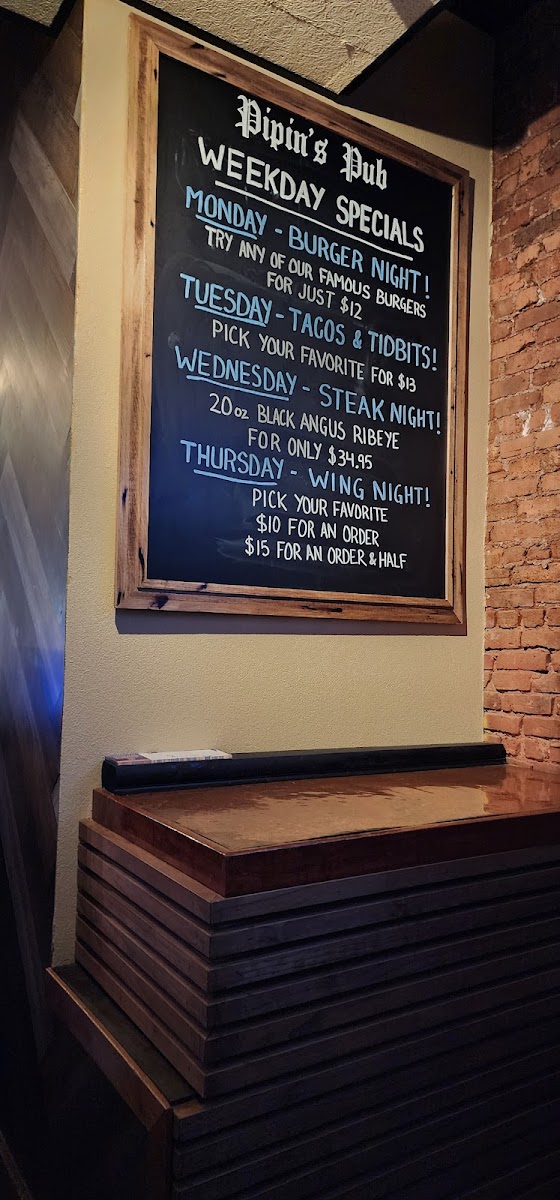 Pipin's Pub
WEEKDAY SPECIALS
MONDAY - BURGER NIGHT!
TRY ANY OF OUR FAMOUS BURGERS
FOR JUST $12
TUESDAY - TACOS & TIDBITS!
PICK YOUR FAVORITE FOR $13
WEDNESDAY - STEAK NIGHT!
20oz BLACK ANGUS RIBEYE
FOR ONLY $34.95
THURSDAY - WING NIGHT!
PICK YOUR FAVORITE
$10 FOR AN ORDER
$15 FOR AN ORDER & HALF